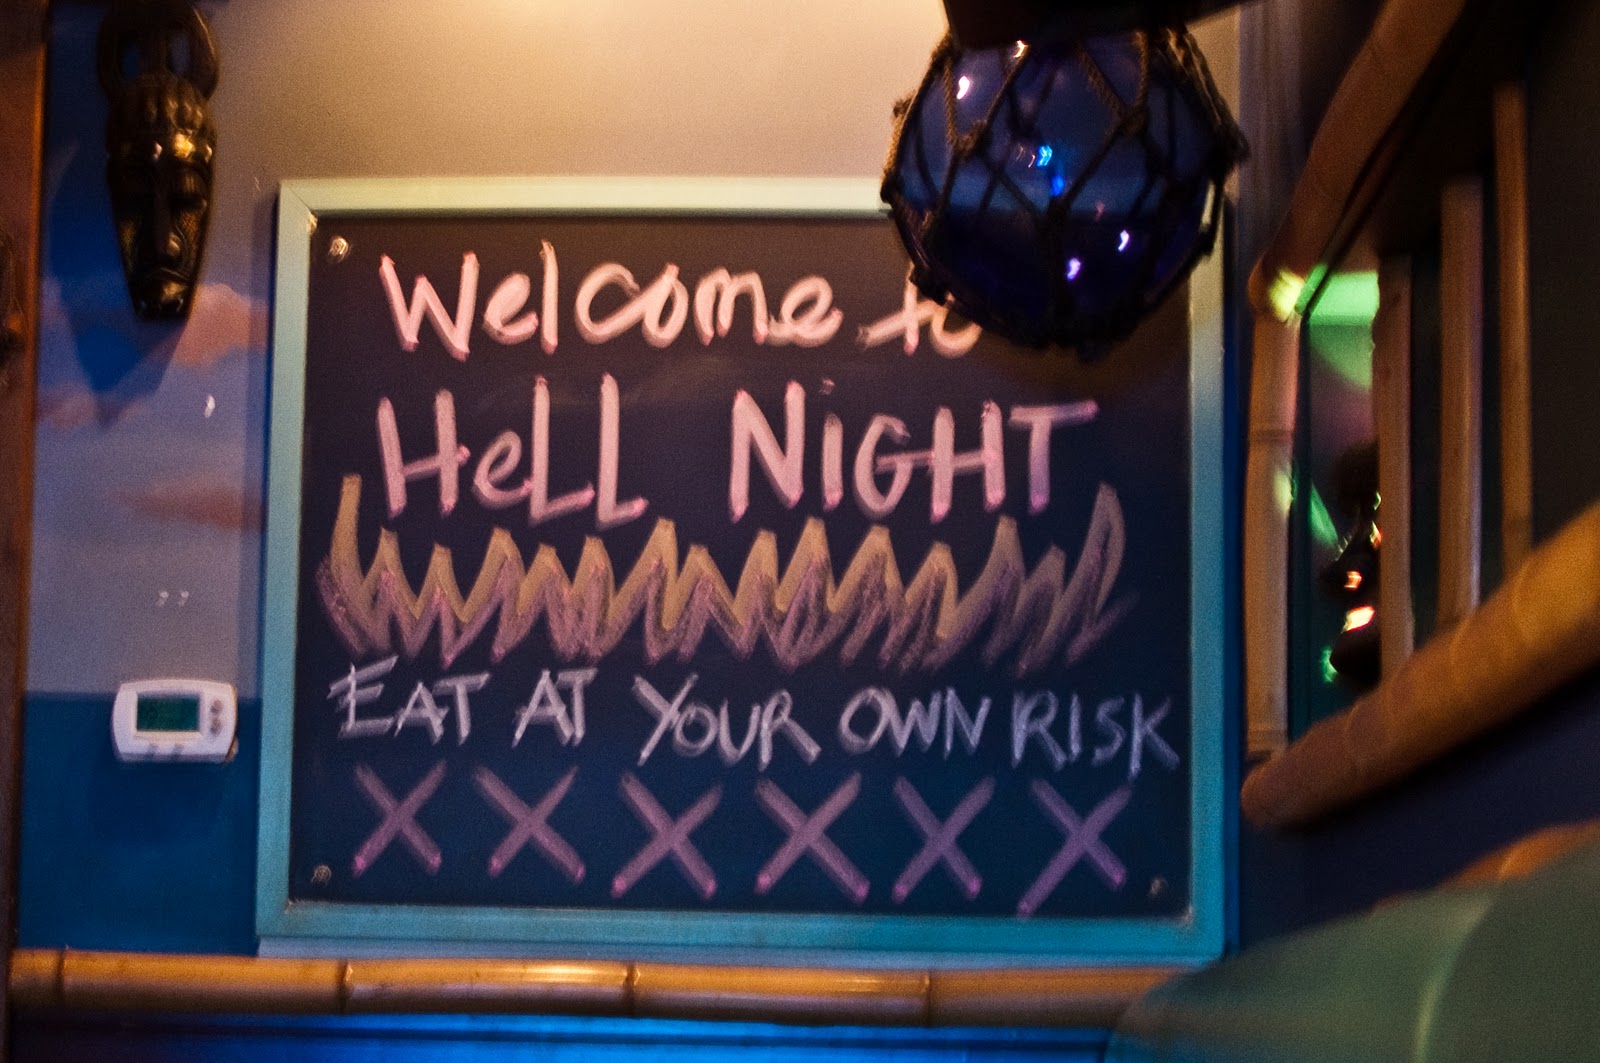 Welcome to
HeLL NiGHT
EAT AT YOUR OWN RISK
X X X X X X